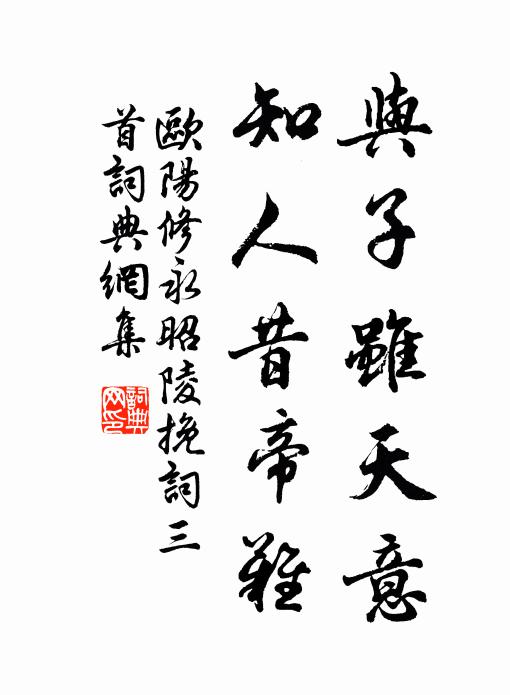 與子雖天意
知人昔帝難
歐陽修永昭陵挽詞三
首詞典網集
詞典
网印